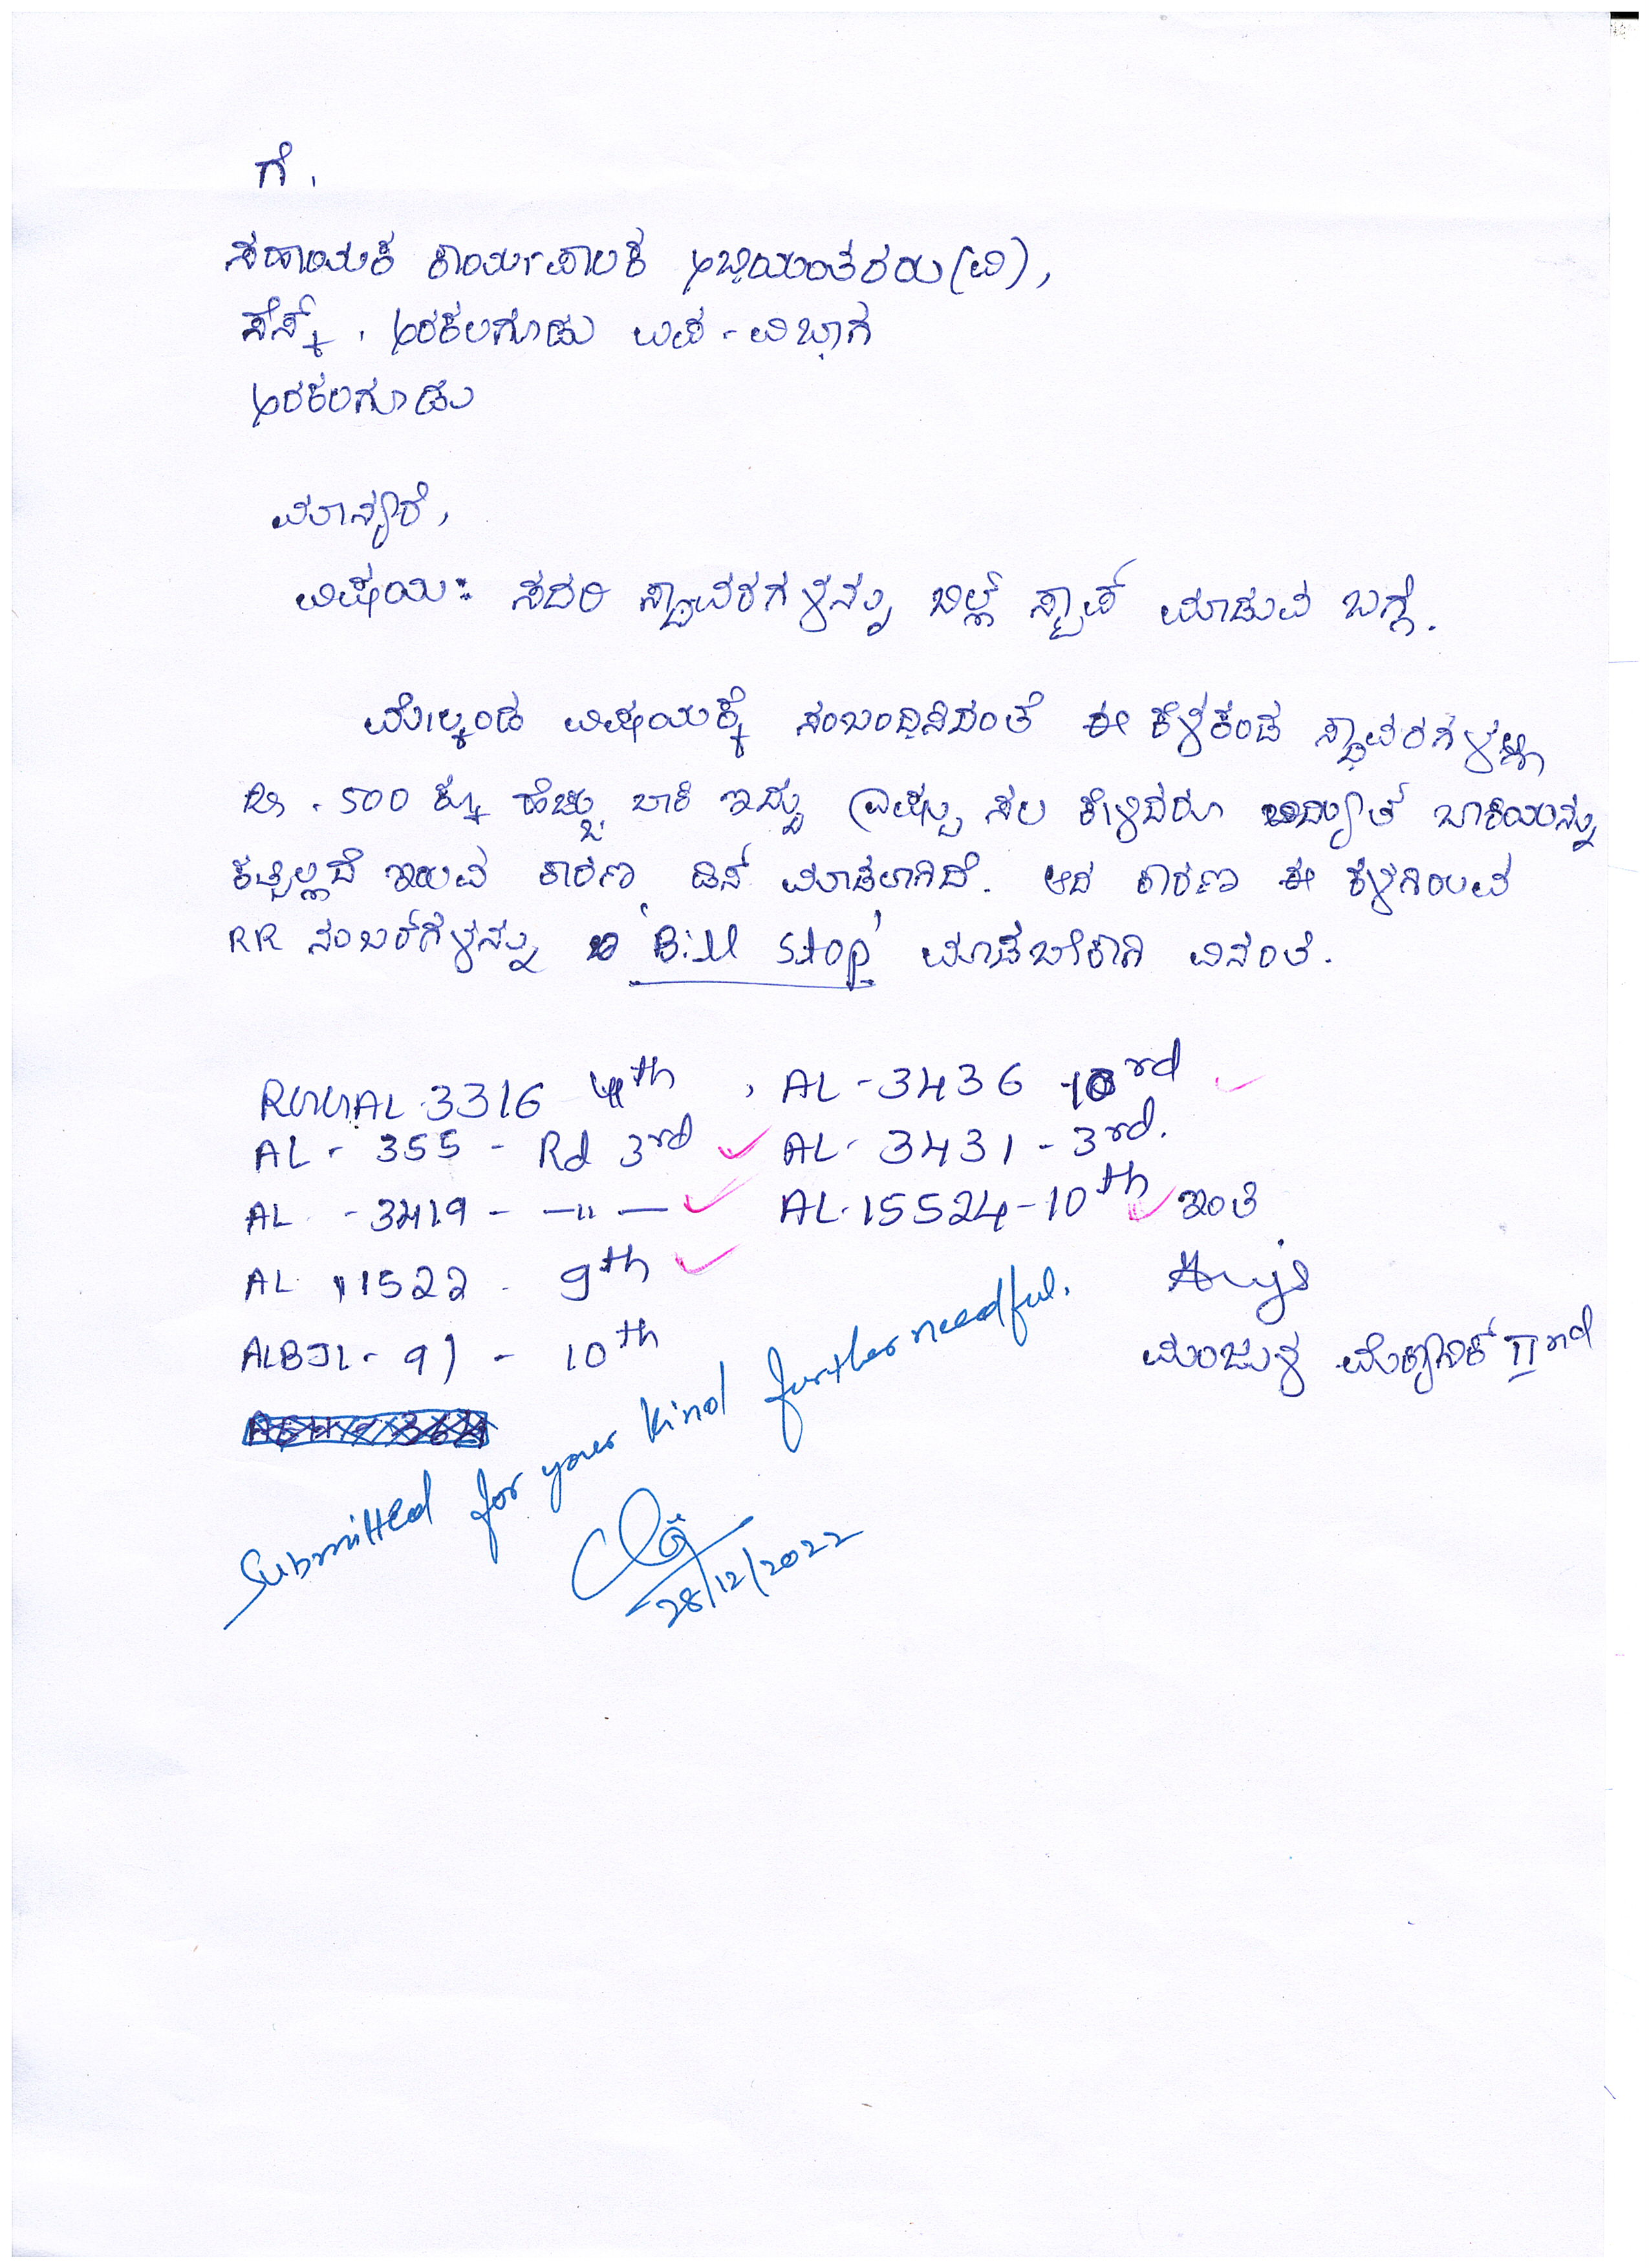 ಗೆ.
ಸಹಾಯಕ ಕಾರ್ಯಪಾಲಕ ಅಭಿಯಂತರರು(ವಿ),
ಸೆಸ್ಕ್. ಅರಕಲಗೂಡು ಉಪ-ವಿಭಾಗ
ಅರಕಲಗೂಡು
ಮಾನ್ಯರೆ,
ವಿಷಯ: ಸದರಿ ಸ್ಥಾವರಗಳನ್ನು ಬಿಲ್ಲ್ ಸ್ಟಾಪ್ ಮಾಡುವ ಬಗ್ಗೆ.
ಮೇಲ್ಕಂಡ ವಿಷಯಕ್ಕೆ ಸಂಬಂಧಿಸಿದಂತೆ ಈ ಕೆಳಕಂಡ ಸ್ಥಾವರಗಳಲ್ಲಿ
Rs. 500 ಕ್ಕೂ ಹೆಚ್ಚು ಬಾಕಿ ಇದ್ದು ಎಷ್ಟು ಸಲ ಕೇಳಿದರೂ ವಿದ್ಯುತ್ ಬಾಕಿಯನ್ನು
ಕಟ್ಟಿಲ್ಲದೆ ಇರುವ ಕಾರಣ ಡಿಸ್ ಮಾಡಲಾಗಿದೆ. ಆದ ಕಾರಣ ಈ ಕೆಳಗಿರುವ
RR ನಂಬರ್‌ಗಳನ್ನು 'Bill Stop' ಮಾಡಬೇಕಾಗಿ ವಿನಂತಿ.
AL-3316 4th , AL-3436 rd
AL - 355 - Rd 3rd AL- 3431 - 3rd.
AL -3419 - —"— AL-15524-10th ಇಂತಿ
AL 11522 - 9th
ALBJL- 91 - 10th ಮಂಜುಳ ಮೆಕ್ಯಾನಿಕ್ IInd
Submitted for your kind further needful.
28/12/2022